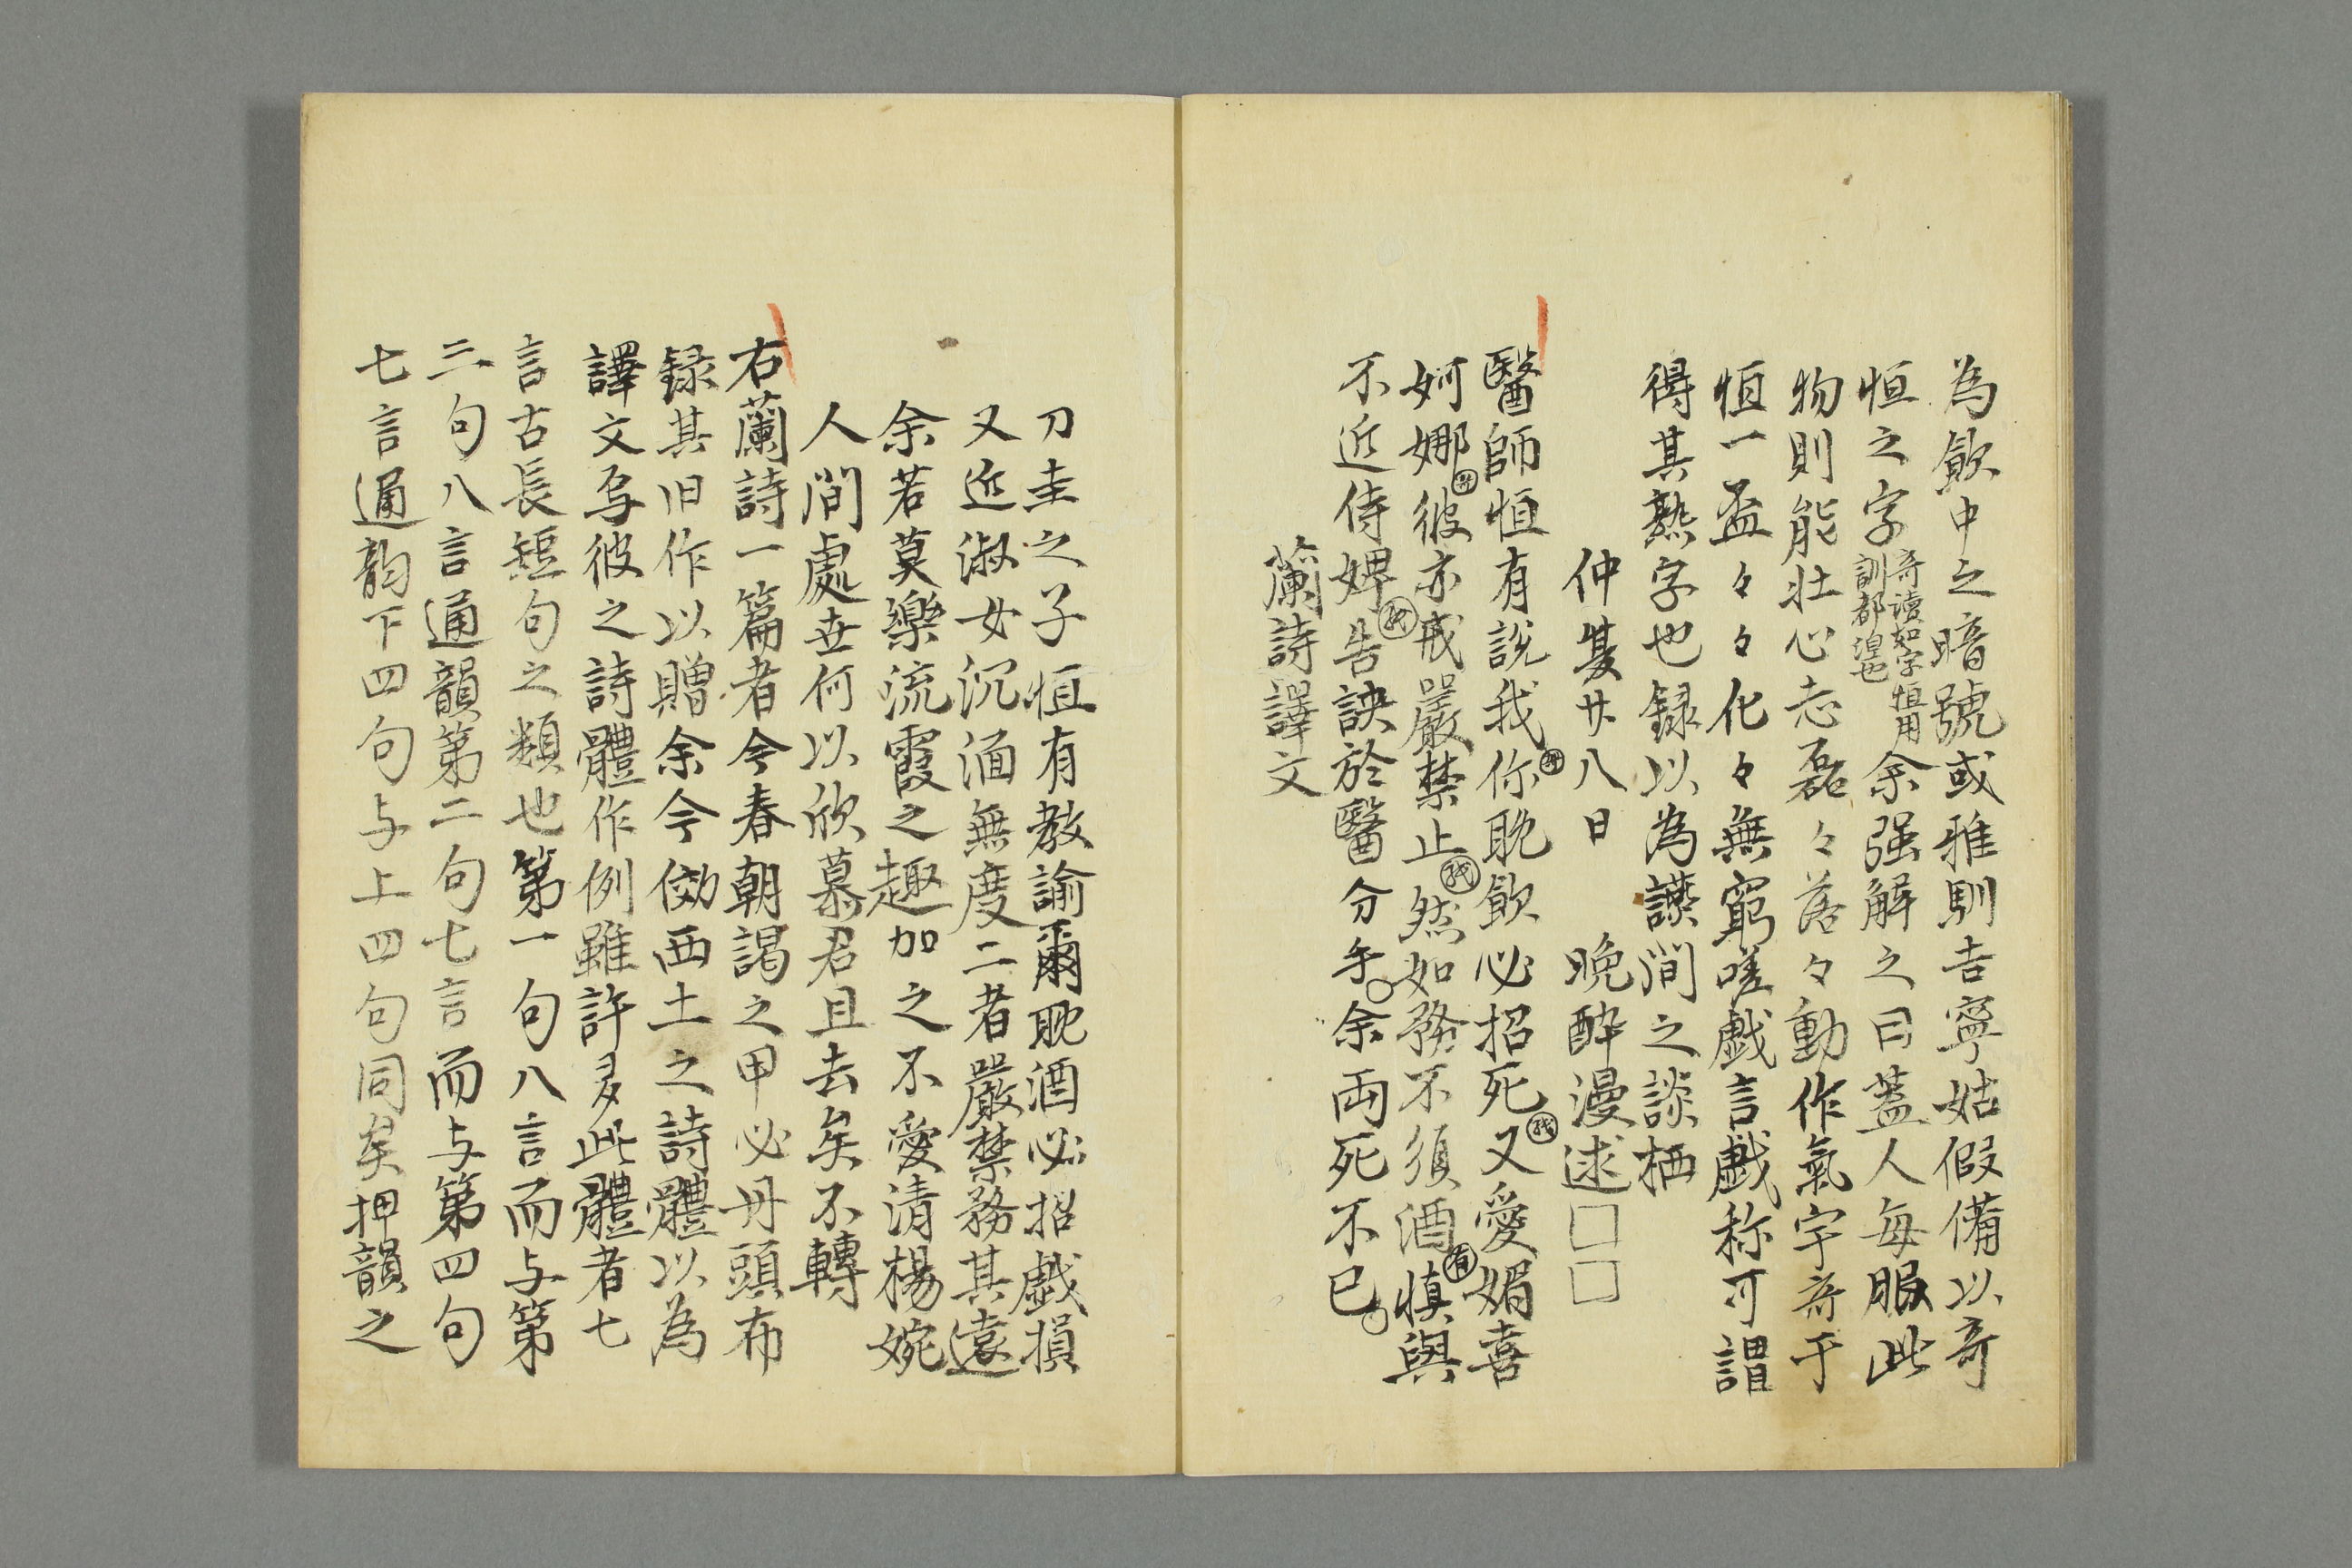 為飲中之暗號或雅馴吉寧姑假備以奇
恒之字
奇讀如字恒用
訓都湟也
余强解之曰蓋人毎服此
物則能壮心志磊々落々動作氣宇奇于
恒一盃々々化々無窮嗟戯言戯称可謂
得其熟字也録以為讌間之談栖
仲夏廿八日 晩酔漫逑□□
醫師恒有説我你耽飲必招死又愛媚喜
妸娜彼亦戒嚴禁止然如務不須酒慎與
不近侍婢告訣於醫分手余両死不已
蘭詩譯文
刀圭之子恒有教諭爾耽酒必招戯損
又近淑女沉湎無度二者嚴禁務其遠
余若莫樂流霞之趣加之不愛清楊婉
人間處世何以欣慕君且去矣不轉
右蘭詩一篇者今春朝謁之甲必丹頭布
録其旧作以贈余今俲西土之詩體以為
譯文写彼之詩體作例雖許多此體者七
言古長短句之類也第一句八言而与第
三句八言通韻第二句七言而与第四句
七言通韵下四句与上四句同矣押韻之